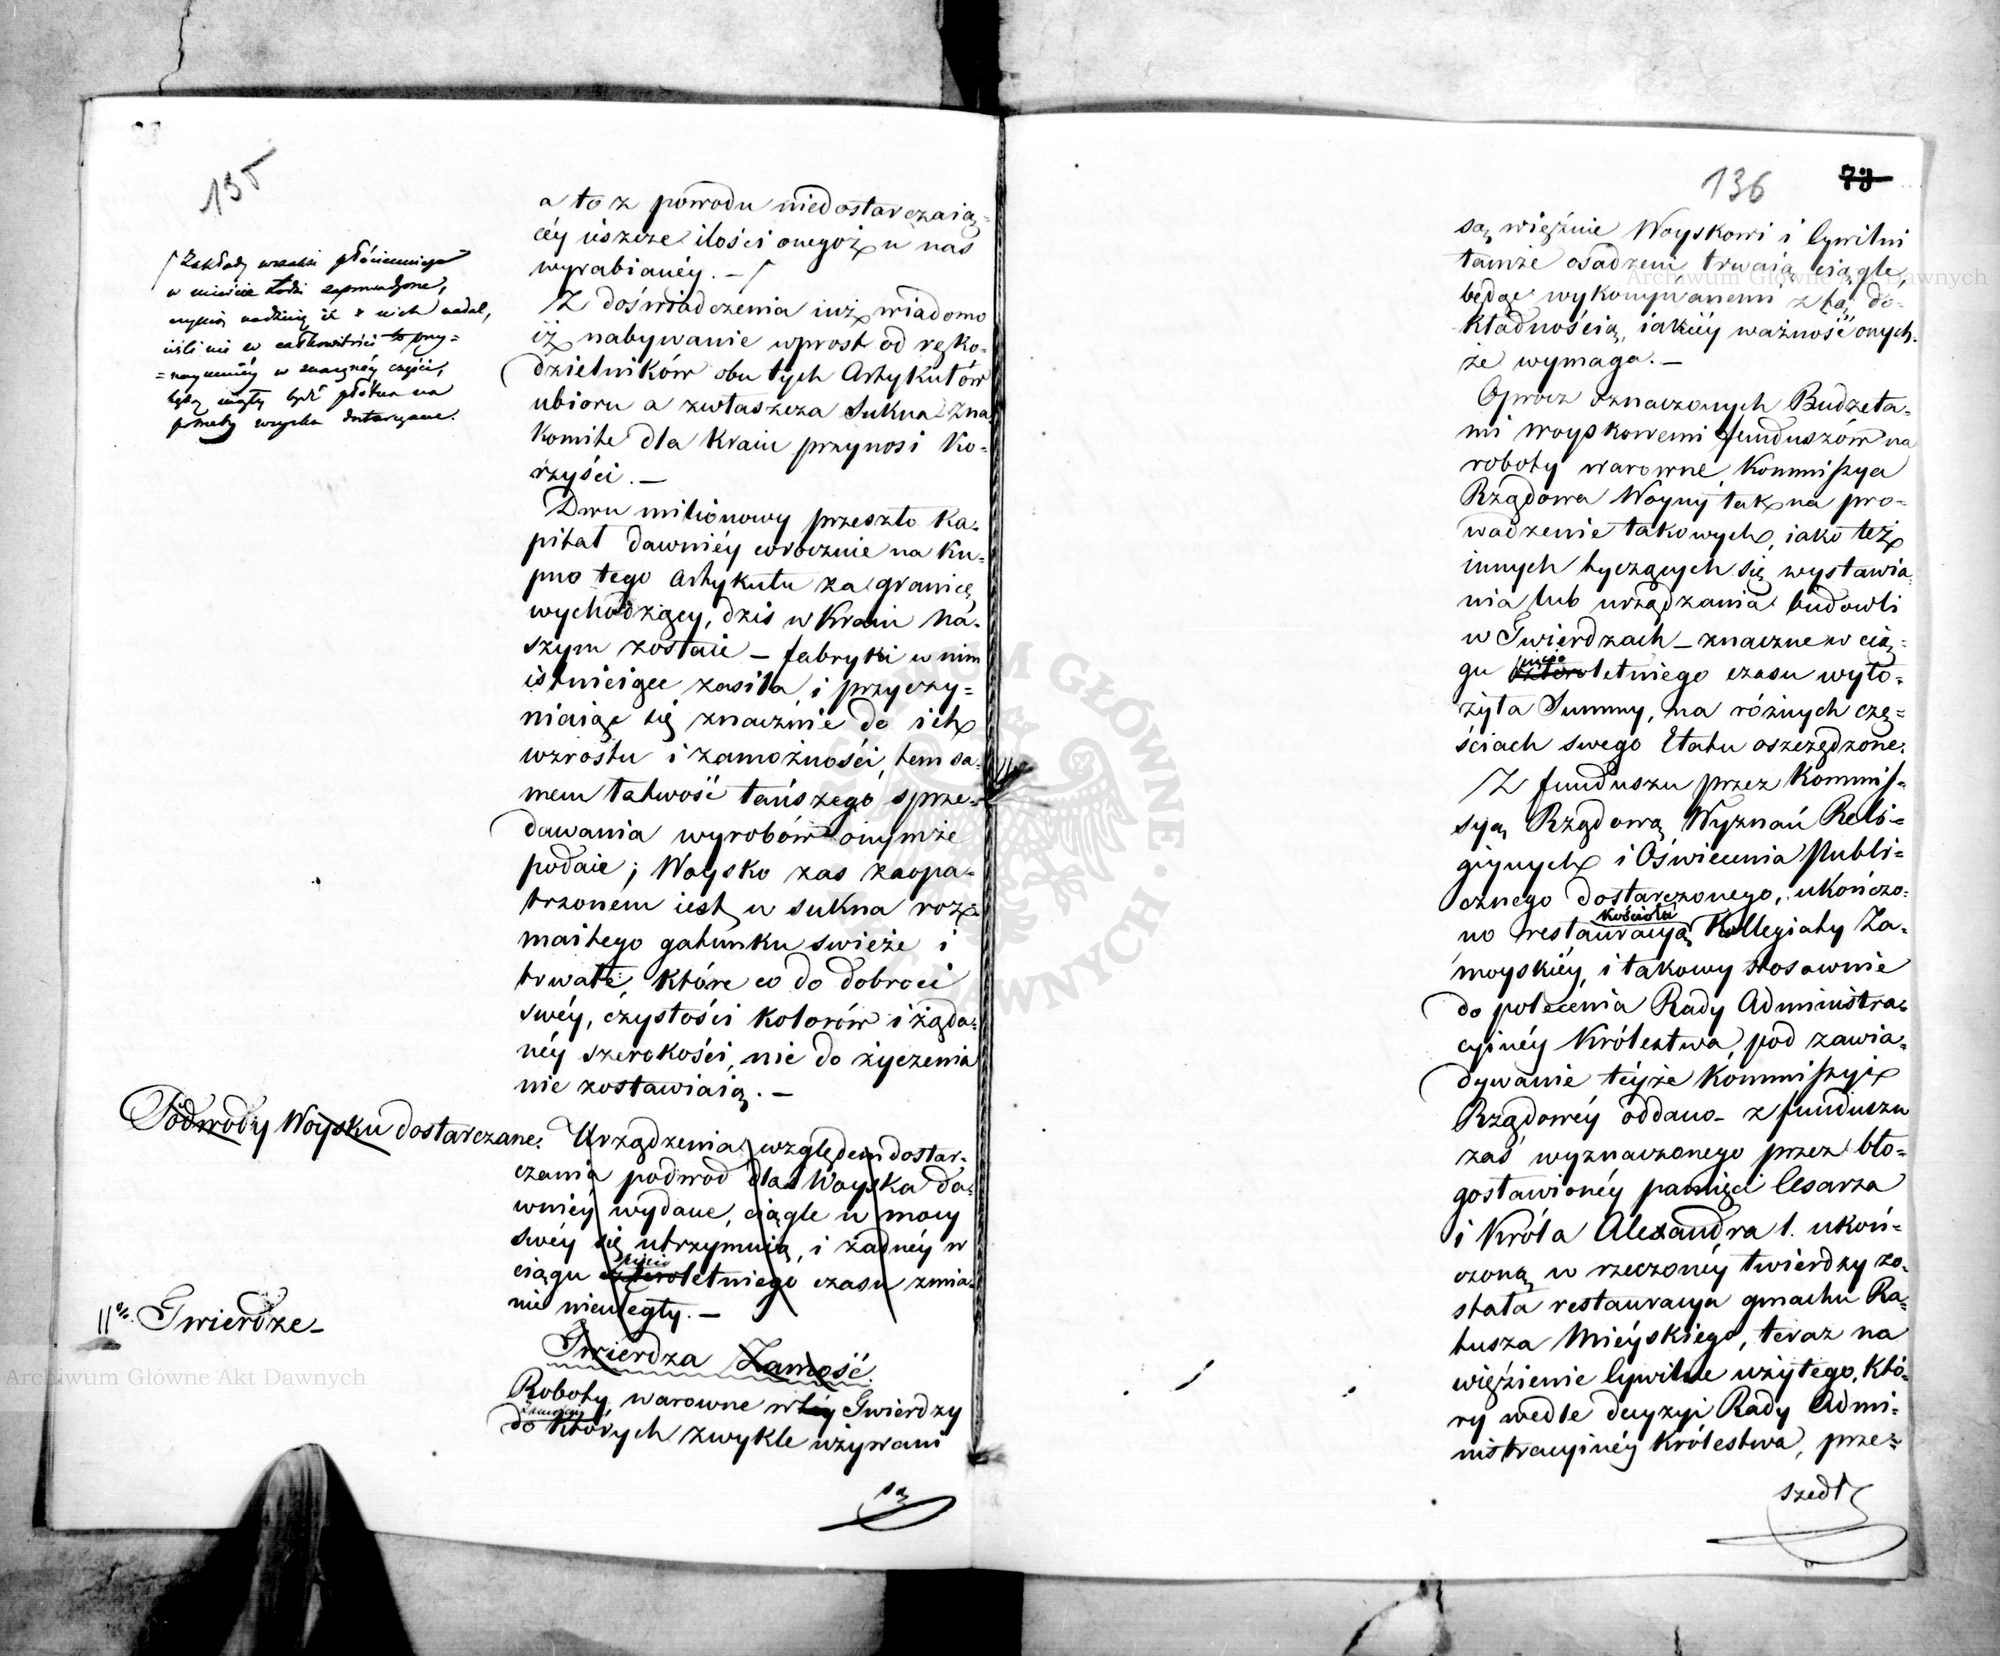 135
/ Zakłady wzaski płóciennego
w mieście Łodzi zaprowadzone,
czynią nadzieię iż z nich nadal,
ieśli nie w całkowitości to przy=
=naymniéy w znaczney części,
będą mogły bydź płótna na
potrzeby woyska dostarczane.
a to z powodu niedostarczaią=
céy ieszcze ilości onegoż u nas
wyrabianéy. — /
Z doświadczenia iuż wiadomo
iż nabywanie wprost od ręko=
dzielników obu tych Artykułów
ubioru a zwłaszcza Sukna zna
komite dla Kraiu przynosi Ko=
rzyści. —
Dwu milionowy przeszło Ka=
pitał dawniéy corocznie na Ku=
pno tego Artykułu za granicę
wychodzący, dziś w Kraiu na=
szym zostaie — fabryki w nim
istnieiące zasila i przyczy=
niaiąc się znacznie do ich
wzrostu i zamożności, tem sa=
mem łatwość tańszego sprze=
dawania wyrobów onymże
podaie; Woysko zas zaopa=
trzonem iest w sukna roz=
maitego gatunku świeże i
trwałe, które co do dobroci
swéy, czystości kolorów i żąda=
néy szerokości, nic do życzenia
nie zostawiaią. —
Podwody Woysku dostarczane.
Urządzenia względem dostar=
czania podwod dla Woyska da=
wniéy wydane, ciągle w mocy
swéy się utrzymuią, i żadnéy w
pięcio
ciągu cztéroletniego czasu zmia=
nie nieuległy. —
11° Twierdze —
Twierdza Zamość.
Roboty, warowne w téy Twierdzy
Zamościu
do których zwykle używani
są
136 73
są więźnie Woyskowi i Cywilni
tamże osadzeni trwaią ciągle,
będąc wykonywanemi z tą do=
kładnością, iakiéy ważność onych=
że wymaga. —
Oprócz oznaczonych Budżeta=
mi woyskowemi funduszów na
roboty warowne, Kommissya
Rządowa Woyny tak na pro=
wadzenie takowych, iako też
innych tyczących się wystawia=
nia lub urządzania budowli
w Twierdzach — znaczne w cią=
pięcio
gu czteroletniego czasu wyło=
żyła Summy, na różnych czę=
ściach swego Etatu oszczędzone.
Z funduszu przez Kommis=
syą Rządową Wyznań Reli=
giynych i Oświecenia Publi=
cznego dostarczonego, ukończo=
Kościoła
no restauracyą Kollegiaty Za=
moyskiéy, i takowy stosownie
do polecenia Rady Administra=
cyjnéy Królestwa, pod zawia=
dywanie téyże Kommissyi
Rządowéy oddano — z funduszu
zaś wyznaczonego przez bło=
gosławionéy pamięci Cesarza
i Króla Alexandra 1. ukoń=
czoną w rzeczonéy twierdzy zo=
stała restauracya gmachu Ra=
tusza Mieyskiego, teraz na
więzienie Cywilne użytego, któ=
ry wedle decyzyi Rady Admi=
nistracyinéy Królestwa, prze=
szedł